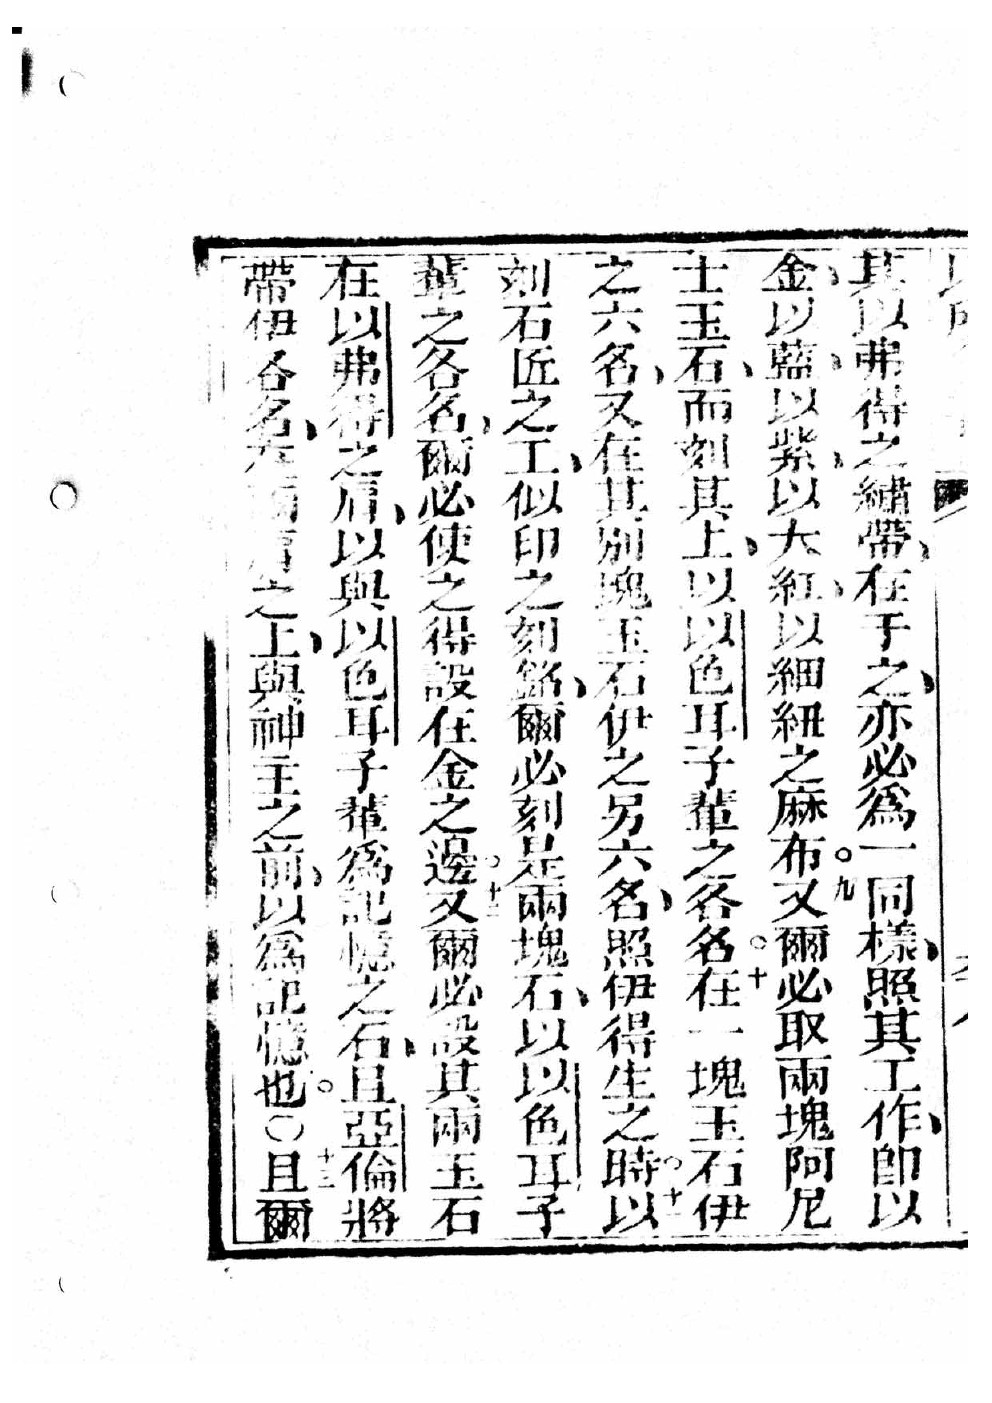 其以弗得之繡帶、在于之、亦必爲一同樣、照其工作、卽以
金、以藍、以紫、以大紅、以細紐之麻布。九又爾必取兩塊阿尼
士玉石、而刻其上、以以色耳子輩之各名。十在一塊玉石伊
之六名、又在其別塊玉石伊之另六名、照伊得生之時。十一以
刻石匠之工、似印之刻銘、爾必刻是兩塊石、以以色耳子
輩之各名、爾必使之得設在金之邊。十二又爾必設其兩玉石
在以弗得之肩、以與以色耳子輩爲記憶之石、且亞倫將
帶伊各名、在兩肩之上、與神主之前、以爲記憶也。〇十三且爾